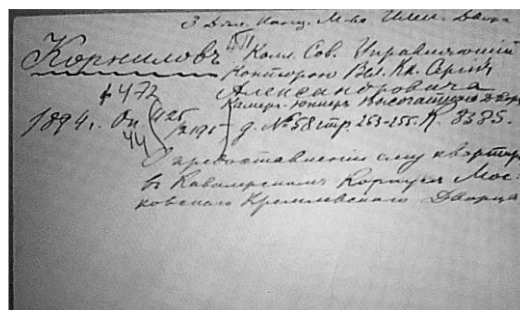 3 Дѣл. Канц. М-ва Имп. Двора
Корниловъ Колл. Сов. Управляющій
Конторою Вел. Кн. Сергія
ф 472 Александровича
Камеръ-Юнкеръ Высочайшаго Двора
1894г. Оп 44 д. №58 стр. 253-255. К. 8385.
О предоставленіи ему квартиры
въ Кавалерскомъ Корпусѣ Мос-
ковскаго Кремлевскаго Дворца